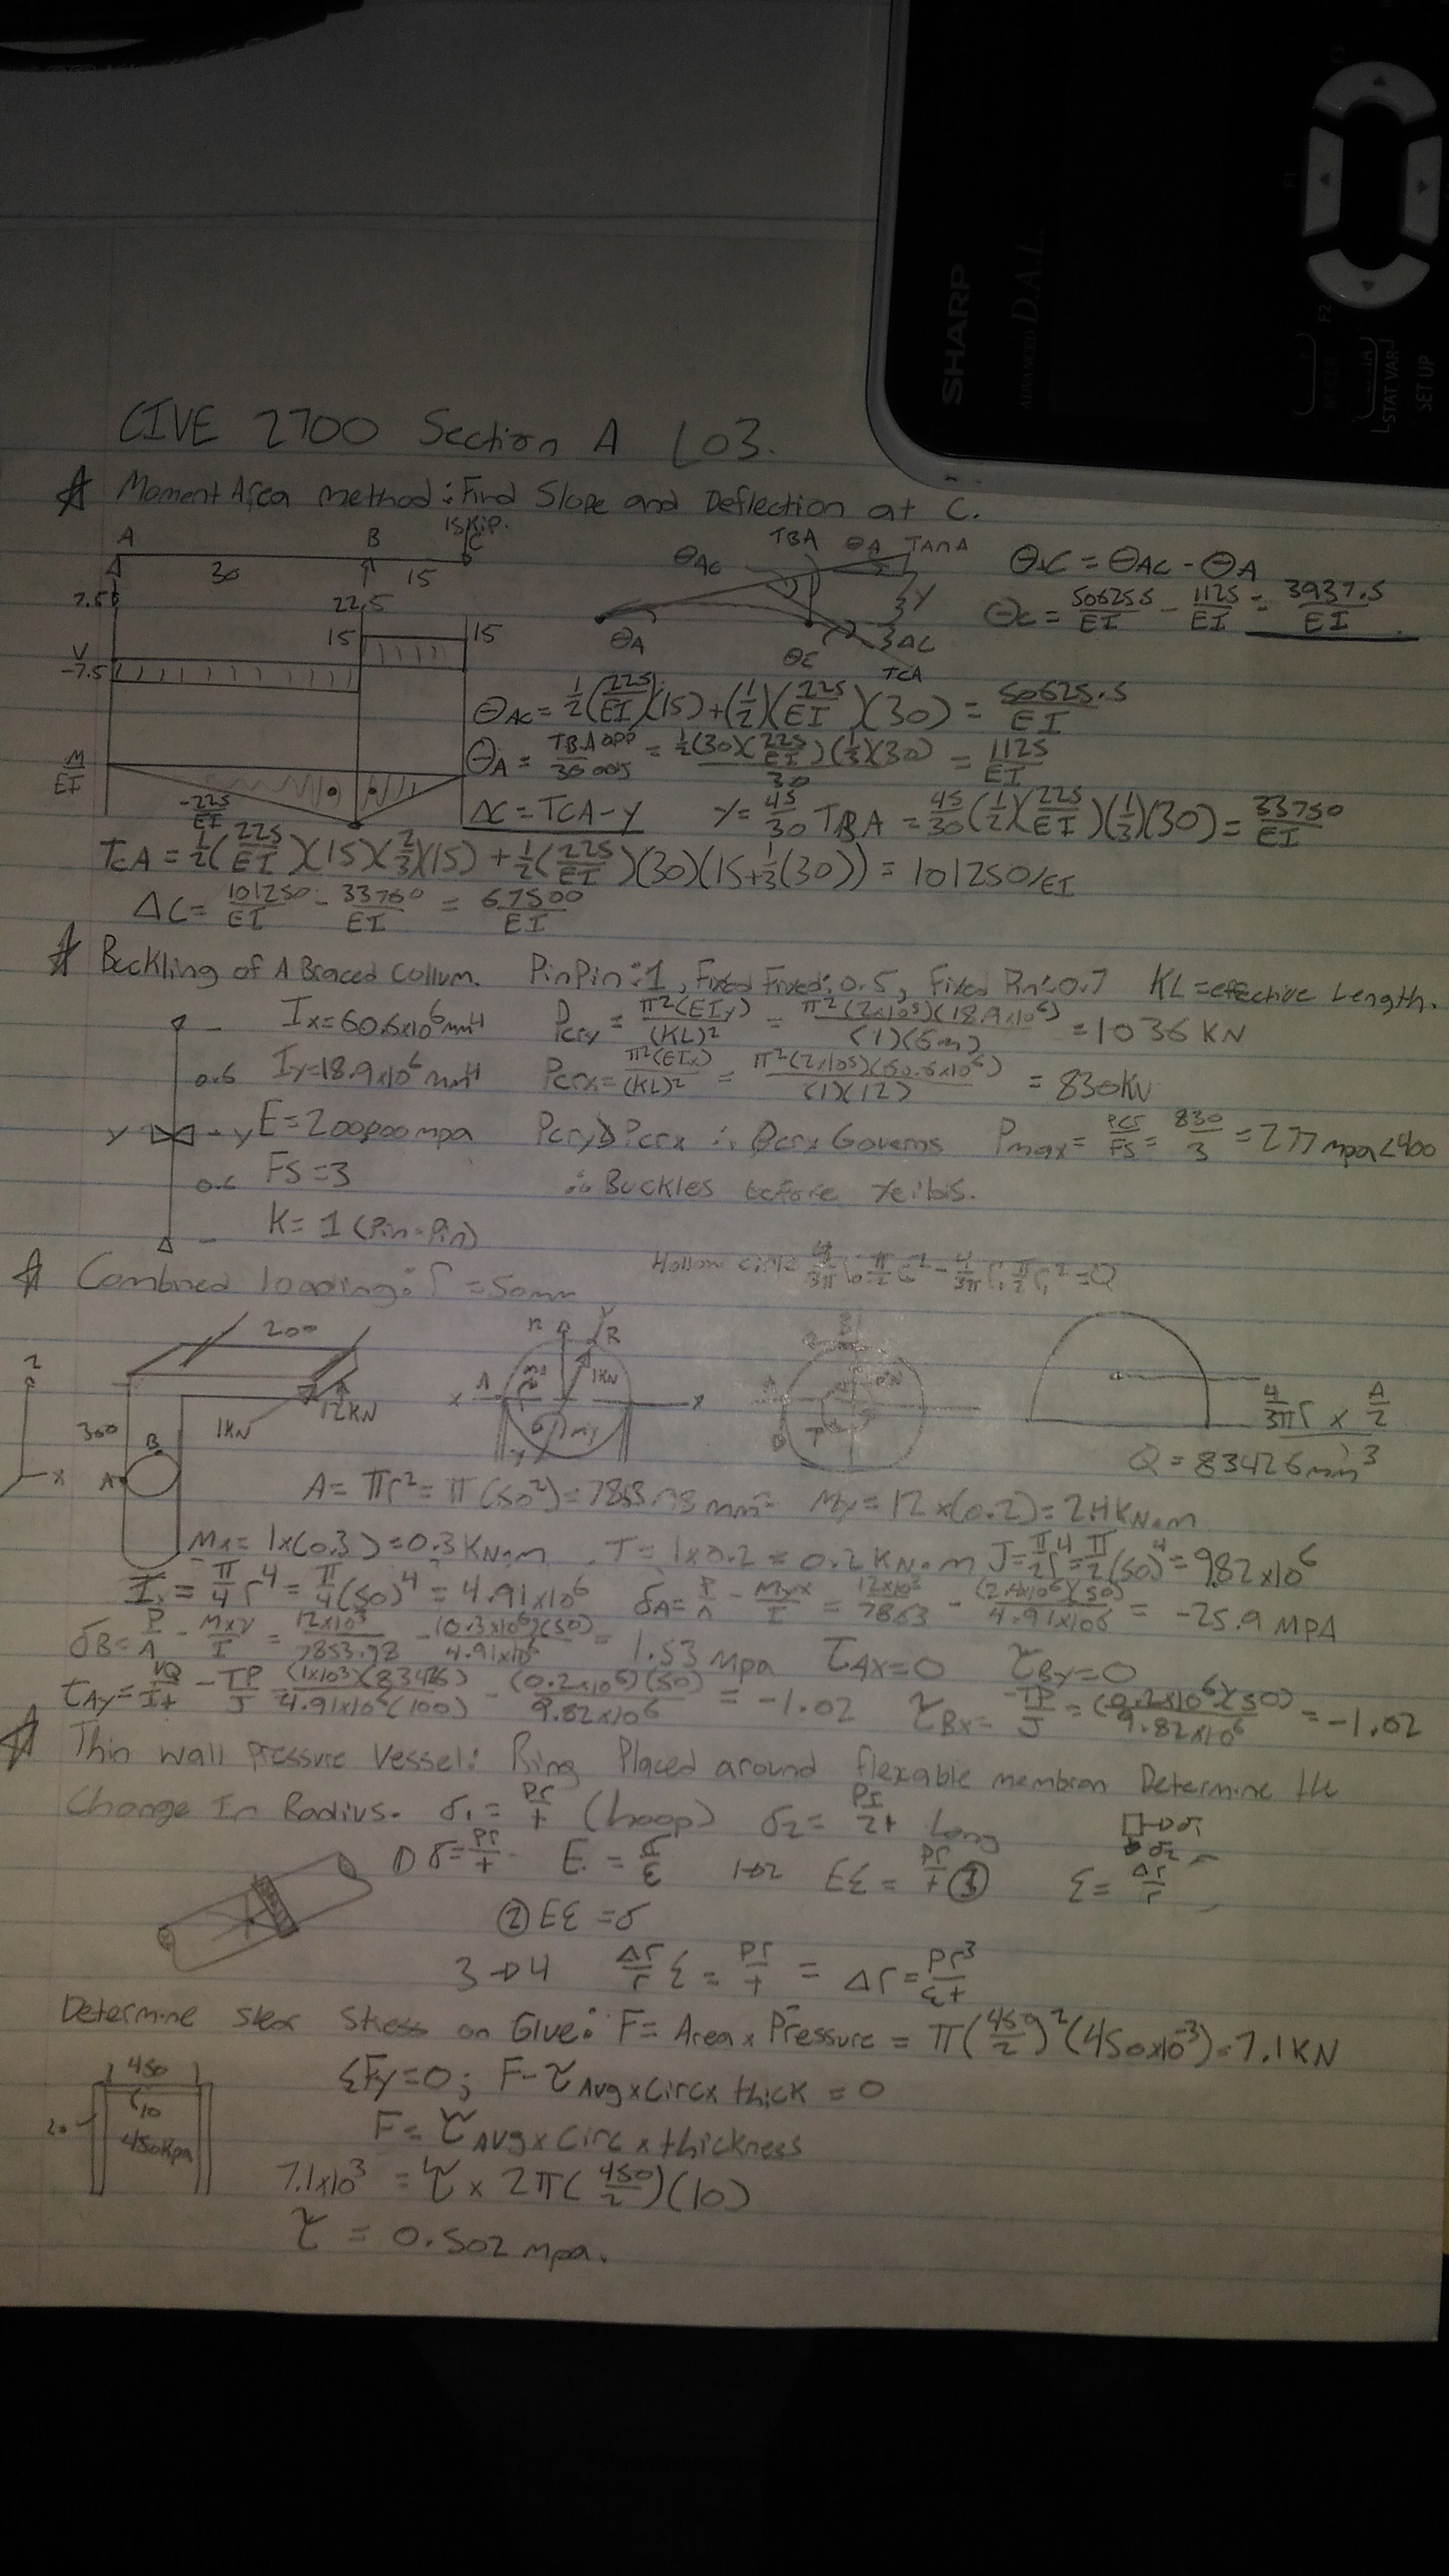 SHARP
ADVANCED D.A.L.
F1
F2
F3
STAT VAR
SET UP
CIVE 2700 Section A L03.
Moment Area method: Find Slope and Deflection at C.
A B 15kip. C
30 15
7.5 22.5
V 15 15
-7.5
M/EI
-225/EI
θAC TBA θA TANA
θA θC Y ΔC TCA
θC = θAC - θA
θC = 50625.5/EI - 1125/EI = 3937.5/EI
θAC = 1/2(225/EI)(15)+(1/2)(225/EI)(30) = 50625.5/EI
θA = TBA opp/30 = 1/2(30)(225/EI)(1/3)(30)/30 = 1125/EI
ΔC = TCA - Y Y = 45/30 TBA = 45/30(1/2)(225/EI)(1/3)(30) = 33750/EI
TCA = 1/2(225/EI)(15)(2/3)(15) + 1/2(225/EI)(30)(15+1/3(30)) = 101250/EI
ΔC = 101250/EI - 33750/EI = 67500/EI
Buckling of A Braced Collum. Pin Pin: 1, Fixed Fixed: 0.5, Fixed Pin: 0.7 KL = effective Length.
Ix = 60.6x10^6 mm4 Pcry = π²(EIy)/(KL)² = π²(2x105)(18.9x10^6)/(1)(6m) = 1036 KN
Iy = 18.9x10^6 mm4 Pcrx = π²(EIx)/(KL)² = π²(2x105)(60.6x10^6)/(1)(12) = 830KN
0.6
y y E = 200000mpa Pcry > Pcrx ∴ Pcrx Governs Pmax = Pcr/FS = 830/3 = 277 mpa < 400
FS = 3 ∴ Buckles before
K = 1 (Pin-Pin)
Combined loading: r = 50mm
Hollow circle
200
300 1KN 12KN
z x A B
1KN
4/3π r x A/2
Q = 83426mm^3
A = πr² = π(50²) = 7853.98mm² My = 12x(0.2) = 2.4KN.m
Mx = 1x(0.3) = 0.3KN.m T = 1x0.2 = 0.2KN.m J = π/2 r4 = π/2 (50)^4 = 9.82x10^6
Ix = π/4 r^4 = π/4(50)^4 = 4.91x10^6 σA = P/A - Myx/I = 12x10³/7853 - (2.4x10^6)(50)/4.91x10^6 = -25.9 MPA
σB = P/A - Mxy/I = 12x10³/7853.98 - (0.3x10^6)(50)/4.91x10^6 = 1.53 mpa τAx = 0 τBy = 0
τAy = VQ/It - TP/J = (1x10³)(83426)/4.91x10^6(100) - (0.2x10^6)(50)/9.82x10^6 = -1.02 τBx = -TP/J = (0.2x10^6)(50)/9.82x10^6 = -1.02
Thin wall Pressure Vessel: Ring Placed around flexable membran Determine the
Change In Radius. σ1 = Pr/t (hoop) σ2 = Pr/2t Long
① σ = Pr/t E = σ/ε 1→2 Eε = Pr/t ③ ε = Δr/r
② Eε = σ
3→4 Δr/r ε = Pr/t = Δr = Pr^3/εt
Determine Stress on Glue: F = Area x Pressure = π(450/2)²(450x10^-3) = 7.1KN
450 ΣFy = 0; F - τ Avg x circ x thick = 0
10
20 450Kpa F = τ Avg x Circ x thickness
7.1x10³ = τ x 2π(450/2)(10)
τ = 0.502 mpa.